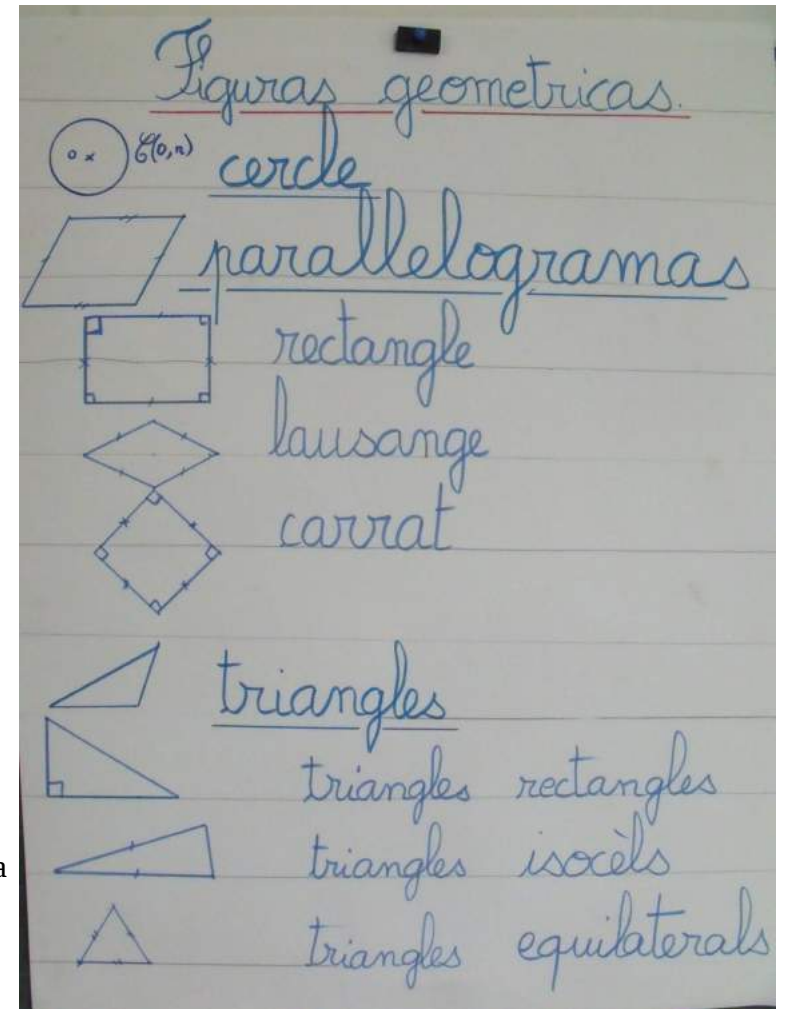 Figuras geometricas.
o x C(o,r) cercle
parallelogramas
rectangle
lausange
carrat
triangles
triangles rectangles
triangles isocèls
triangles equilaterals
a